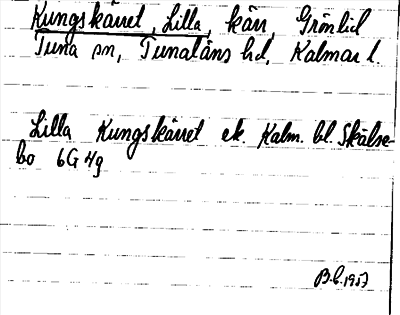 Kungskärret, Lilla, kärr, Grönlid
Tuna sn, Tunaläns hd, Kalmar l.
Lilla Kungskärret ek. Kalm. bl. Skälse-
bo 6G 4g
B.C. 1957